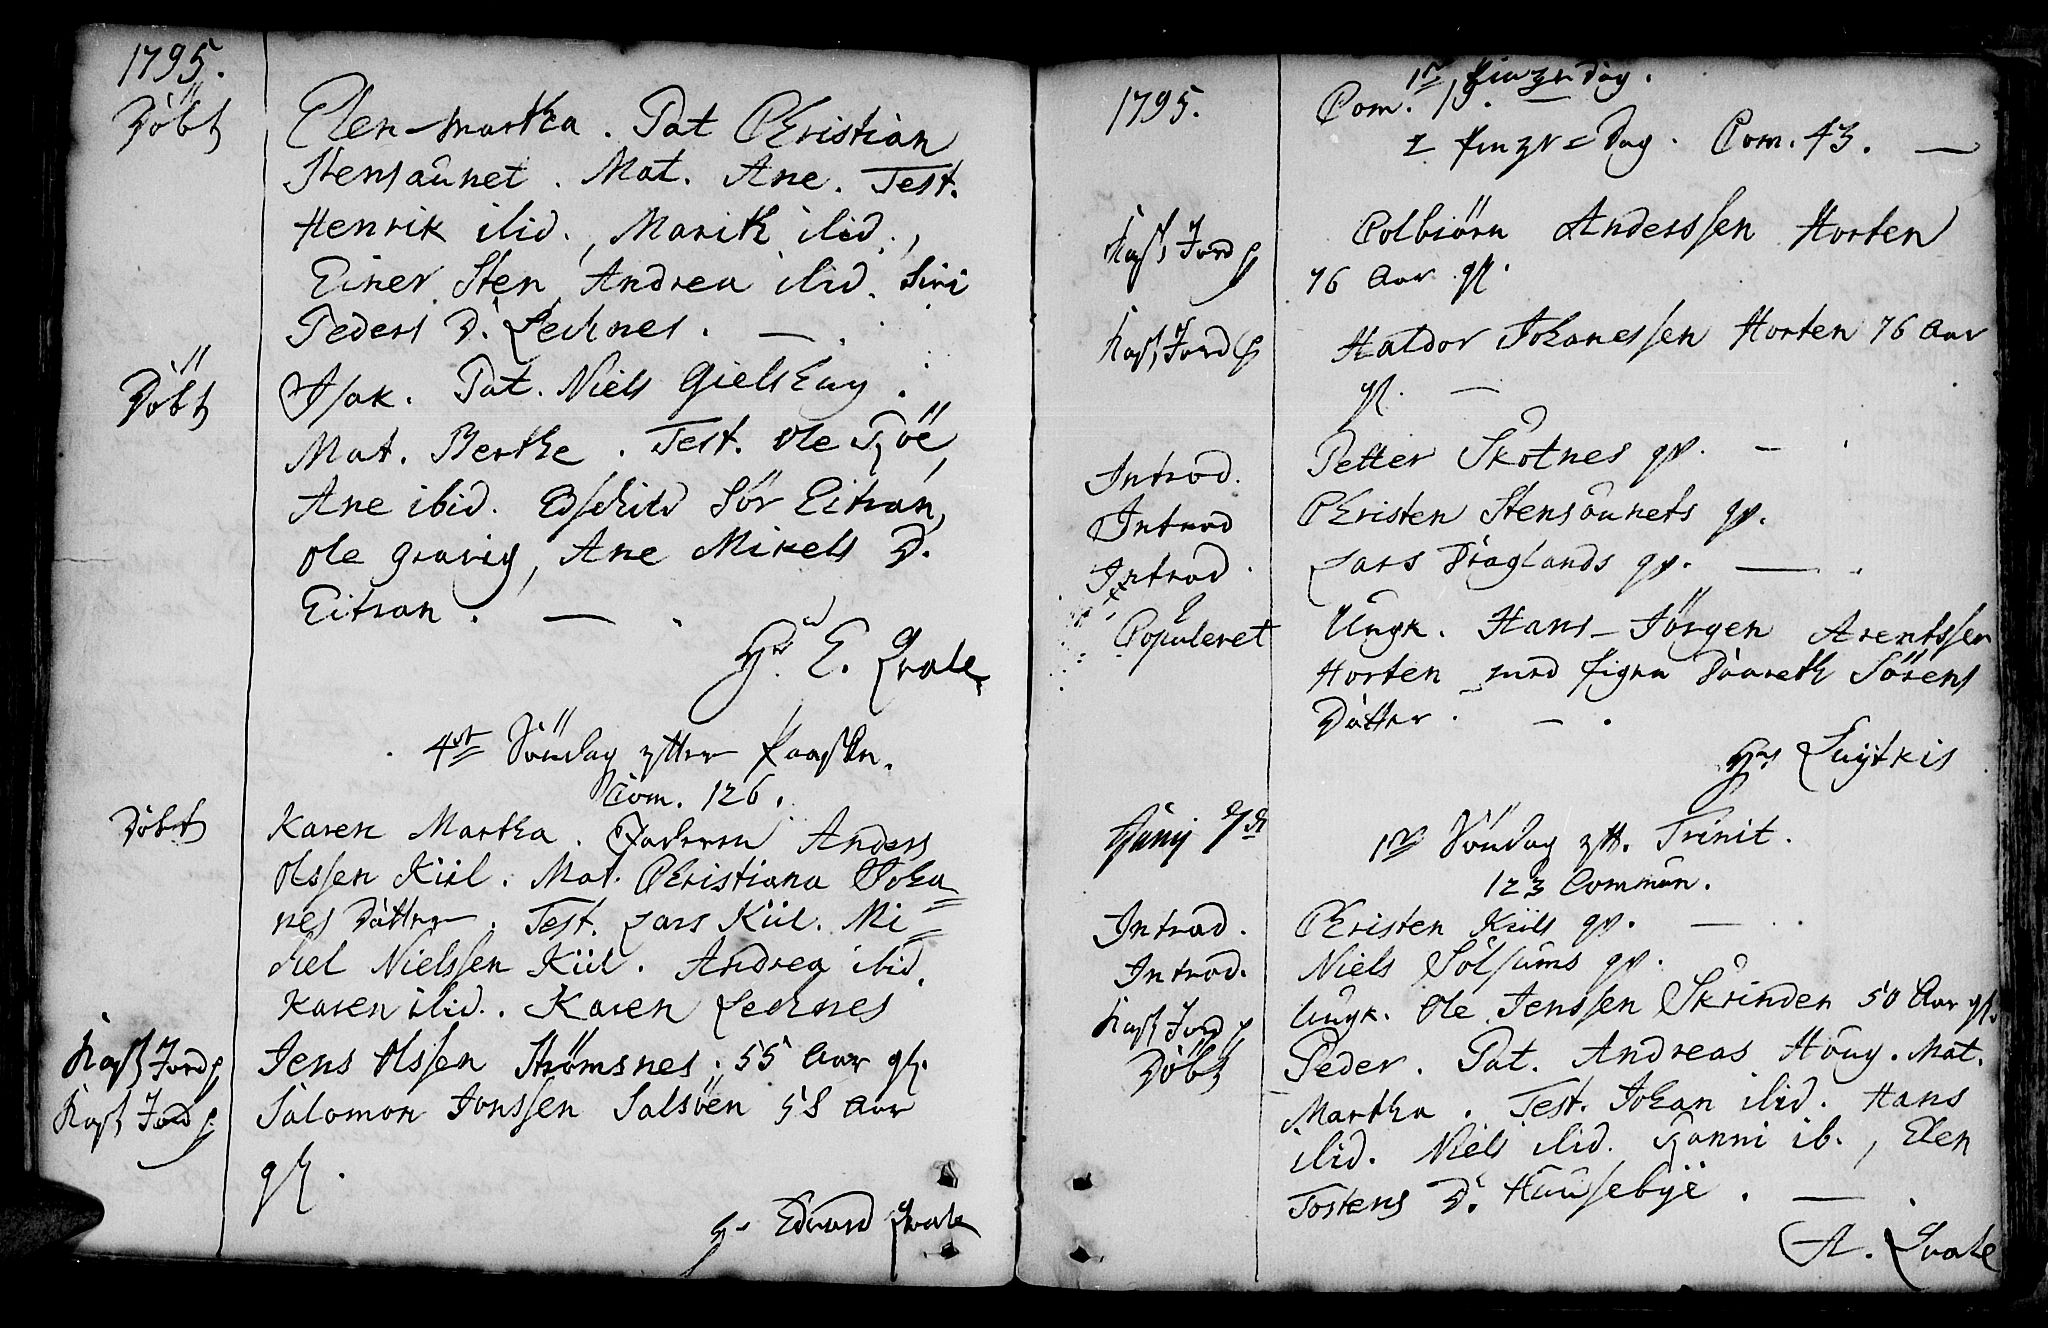 1795.
Döbt
Elen Martha. Pat Christian
Stensaunet. Mat. Ane. Test.
Henrik ibid., Marith ibid.,
Einer Sten, Andrea ibid. Siri
Peders D. Lechnes.
Döbt
Isak. Pat. Niels Gielshuug.
Mat. Berthe. Test. Ole
Ane ibid. Sör Eitran,
Ole Gravig, Ane Mikels D.
Eitran.
Hr E. Qvale
4de Söndag efter Paaske.
Com. 126.
Döbt
Karen Martha. Faderen Anders
Olssen Kiil. Mat. Christiana Joha=
nes Datter. Test. Lars Kiil. Mi=
chel Nielssen Kiil. Andrea ibid.
Karen ibid. Karen Lechnes
Kast Jord p
Jens Olssen Strømsnes. 55 Aar gl.
Kast Jord p
Salomon Jonssen Salsöen 58 Aar
gl.
Hr Edvard Qvale
1795.
1te Pinzedag.
Com. 19.
2 Pinze=Dag. Com. 43.
Kast Jord p
Colbiörn Anderssen Horten
76 Aar gl.
Kast Jord p
Haldor Johanessen Horten 76 Aar
gl.
Introd.
Petter Skotnes qv.
Introd
Christen Stensaunets qv.
Introd.
Lars Draglands qv.
Copuleret
Ungk. Hans Jörgen Arentssen
Horten med Pigen Daareth Sörens
Datter.
Hr Luytkis
Junij 7de
1te Söndag eft. Trinit.
123 Commun.
Introd.
Christen Kiils qv.
Introd.
Niels Solsums qv.
Kast Jord p
Ungk. Ole Jenssen Skrinden 50 Aar gl.
Döbt
Peder. Pat. Andreas Houg. Mat.
Martha. Test. Johan ibid. Hans
ibid. Niels ibid. ib., Elen
Tostens D. Huusebye.
A. Qvale